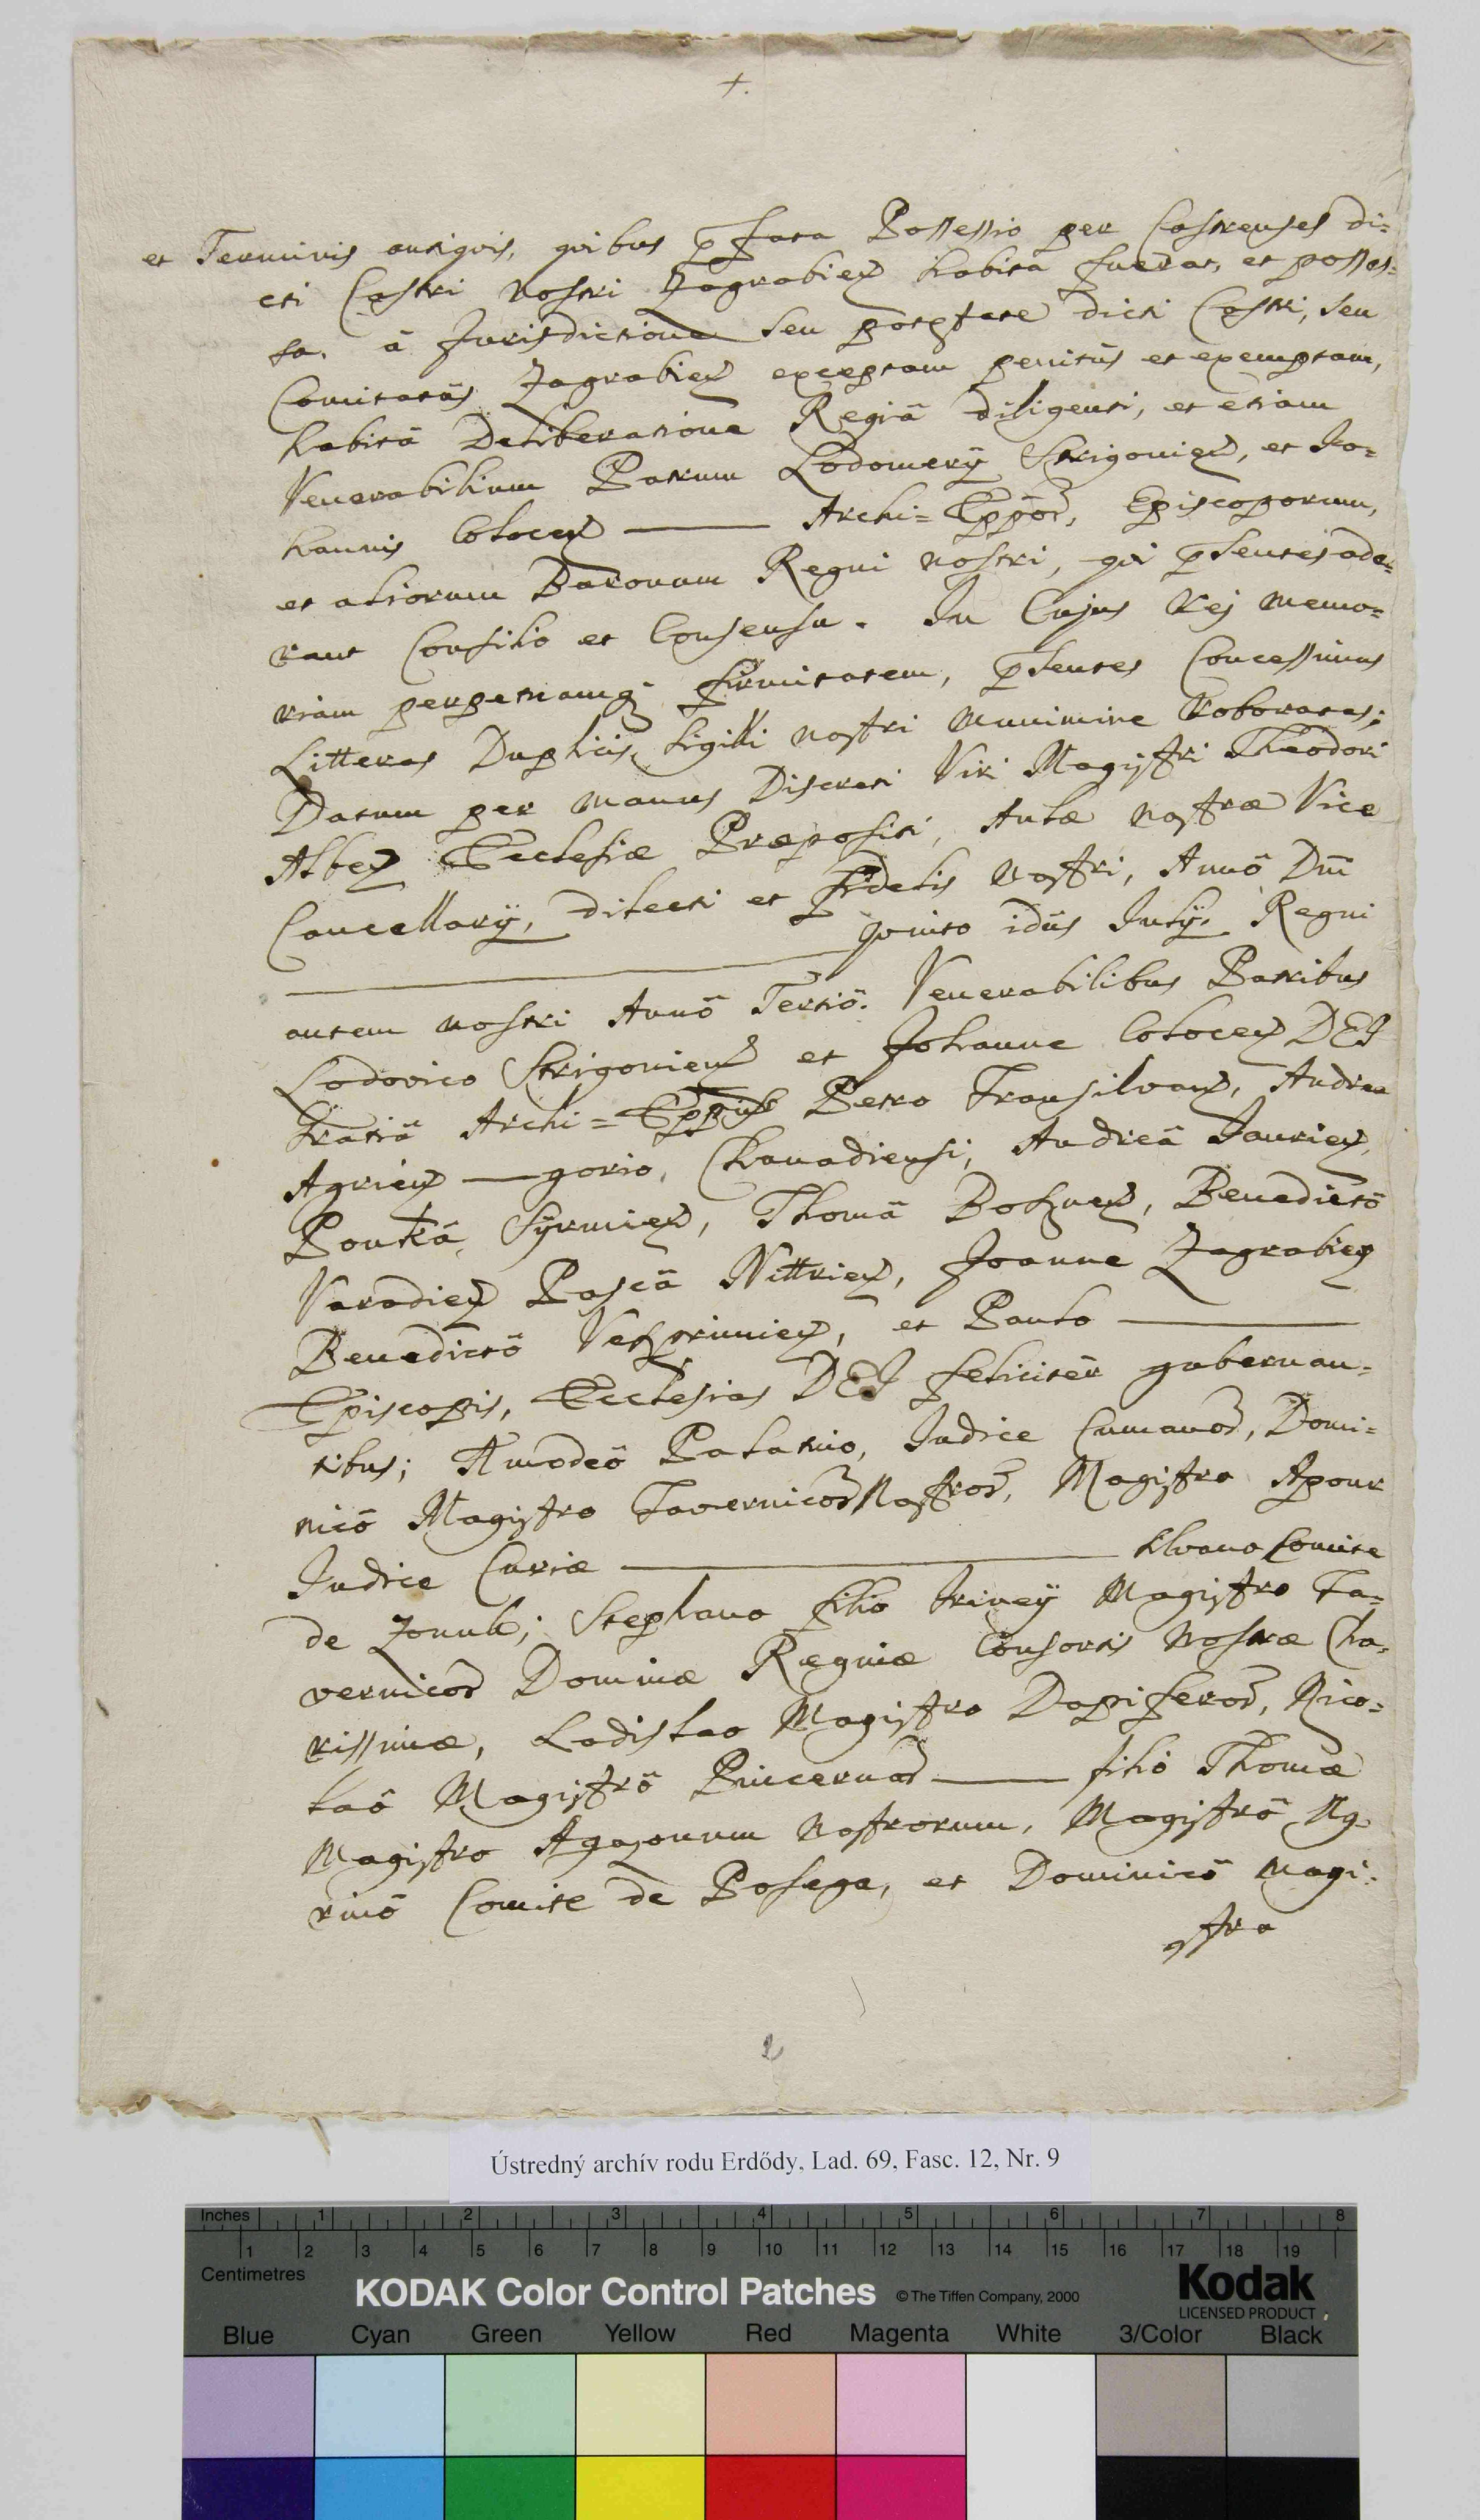 +.
et Terminis antiquis, quibus p̄fata Possessio per Castrenses di=
cti Castri nostri Zagrabien̄ habita fuerat, et posses=
sa, à Jurisdictione seu potestate dicti Castri, seu
Comitatûs Zagrabien̄ exceptam penitùs et exemptam,
habitâ Deliberatione Regiâ diligenti, et etiam
Venerabilium Patrum Lodomerÿ Strigonien̄, et Jo=
hannis Colocen̄ ——— Archi=Eppōr̄, Episcoporum,
et aliorum Baronum Regni nostri, qui p̄sentes ade=
rant Consilio et Consensu. In Cujus Rej memo=
riam perpetuamq̄ firmitatem, p̄sentes Concessimus
Litteras Duplicis Sigilli nostri munimine roboratas;
Datum per manus Discreti Viri Magistri Theodori
Alben̄ Ecclesiæ Præpositi, Aulæ nostræ Vice
Cancellarÿ, dilecti et fidelis nostri, Annô Dn̄i
——— quinto idûs Julÿ. Regni
autem nostri Annô Tertiô. Venerabilibus Patribus
Lodovico Strigonien̄ et Johanne Colocen̄ DEI
Gratiâ Archi=Eppis Petro Transilvan̄, Andrea
Agrien̄ ——— gorio, Chanadiensi, Andreâ Jaurien̄,
Pouká, Sÿrmien̄, Thomâ Boznen̄, Benedictô
Varadien̄ Pascâ Nittrien̄, Joanne Zagrabien̄
Benedictô Veszprimien̄, et Paulo ———
Episcopis, Ecclesias DEI felicitèr gubernan=
tibus; Amodeô Palatino, Judice Cumanor̄, Domi=
nicô Magistro Tavernicor̄ Nostror̄, Magistro Apour
Judice Curiæ ——— klvano Comite
de Zonuk; Stephano filio Irineÿ Magistro Ta=
vernicor̄ Dominæ Reginæ Consortis Nostræ Cha=
rissimæ, Ladislao Magistro Dapiferor̄, Nico=
laô Magistrô Pincernar̄ ——— filio Thomæ
Magistro Agazonum Nostrorum, Magistrô Ug-
rinô Comite de Posega, et Dominicô Magi=
stro
2
Ústredný archív rodu Erdődy, Lad. 69, Fasc. 12, Nr. 9
Inches 1 2 3 4 5 6 7 8
1 2 3 4 5 6 7 8 9 10 11 12 13 14 15 16 17 18 19
Centimetres
KODAK Color Control Patches © The Tiffen Company, 2000 Kodak
LICENSED PRODUCT
Blue Cyan Green Yellow Red Magenta White 3/Color Black